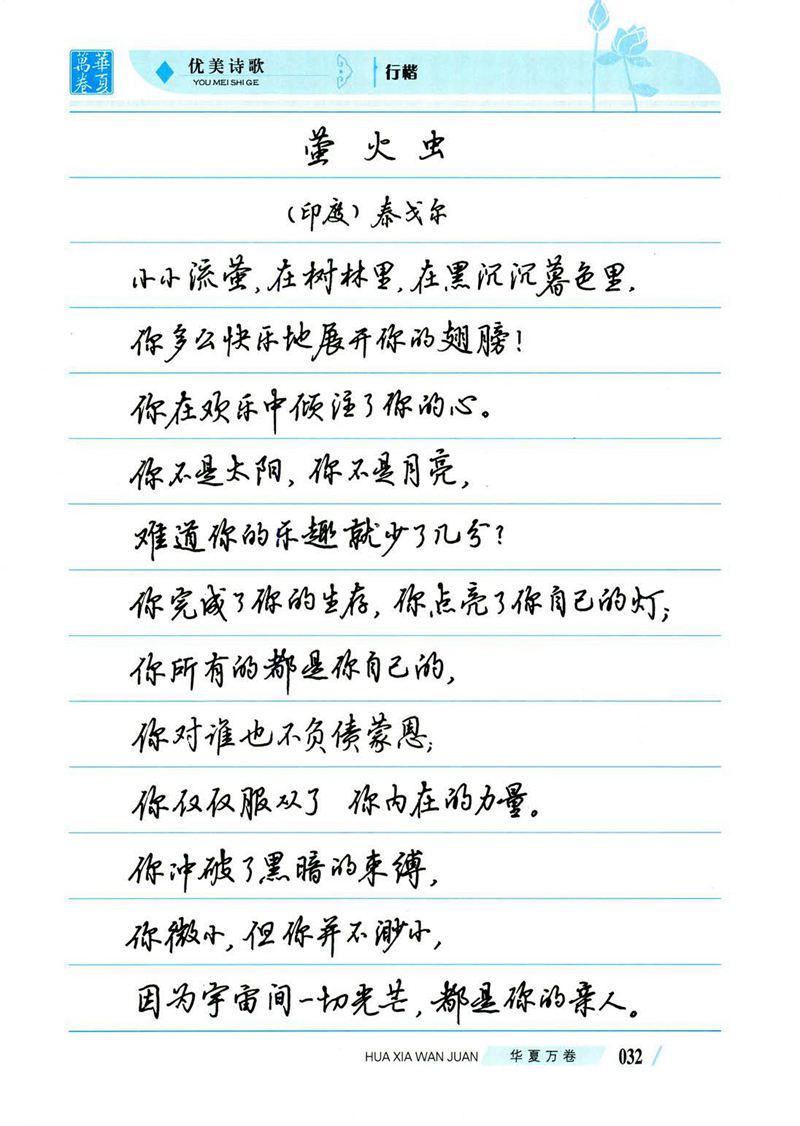 華夏萬卷
优美诗歌 行楷
YOU MEI SHI GE
萤火虫
（印度）泰戈尔
小小流萤,在树林里,在黑沉沉暮色里,
你多么快乐地展开你的翅膀！
你在欢乐中倾注了你的心。
你不是太阳,你不是月亮,
难道你的乐趣就少了几分？
你完成了你的生存,你点亮了你自己的灯;
你所有的都是你自己的,
你对谁也不负债蒙恩;
你仅仅服从了 你内在的力量。
你冲破了黑暗的束缚,
你微小,但你并不渺小,
因为宇宙间一切光芒,都是你的亲人。
HUA XIA WAN JUAN 华夏万卷 032